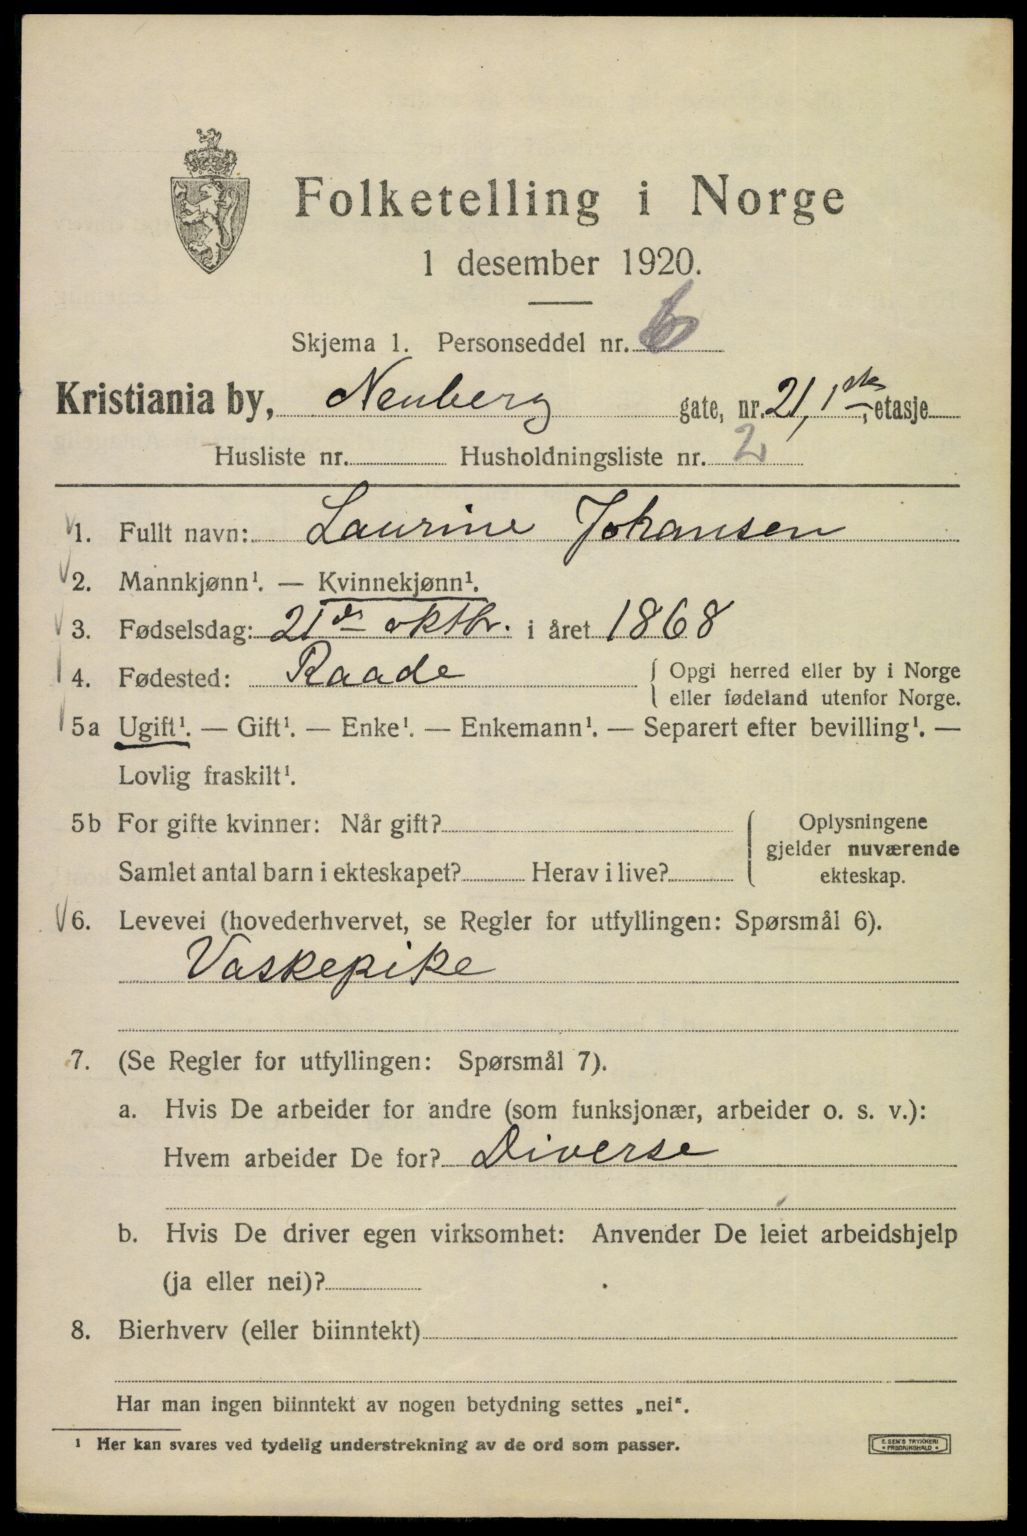 Folketelling i Norge
1 desember 1920.
Skjema 1. Personseddel nr. 6
Kristiania by, Neuberg gate, nr. 21, 1ste etasje
Husliste nr. Husholdningsliste nr. 2
1. Fullt navn: Laurine Johansen
2. Mannkjønn¹. — Kvinnekjønn¹.
3. Fødselsdag: 21de oktbr. i året 1868
4. Fødested: Raade { Opgi herred eller by i Norge
eller fødeland utenfor Norge.
5a Ugift¹. — Gift¹. — Enke¹. — Enkemann¹. — Separert efter bevilling¹. —
Lovlig fraskilt¹.
5b For gifte kvinner: Når gift? { Oplysningene
gjelder nuværende
Samlet antal barn i ekteskapet? Herav i live? ekteskap.
6. Levevei (hovederhvervet, se Regler for utfyllingen: Spørsmål 6).
Vaskepike
7. (Se Regler for utfyllingen: Spørsmål 7).
a. Hvis De arbeider for andre (som funksjonær, arbeider o. s. v.):
Hvem arbeider De for? Diverse
b. Hvis De driver egen virksomhet: Anvender De leiet arbeidshjelp
(ja eller nei)?
8. Bierhverv (eller biinntekt)
Har man ingen biinntekt av nogen betydning settes „nei".
¹ Her kan svares ved tydelig understrekning av de ord som passer.
E. SEM'S TRYKKERI
• FREDRIKSHALD •